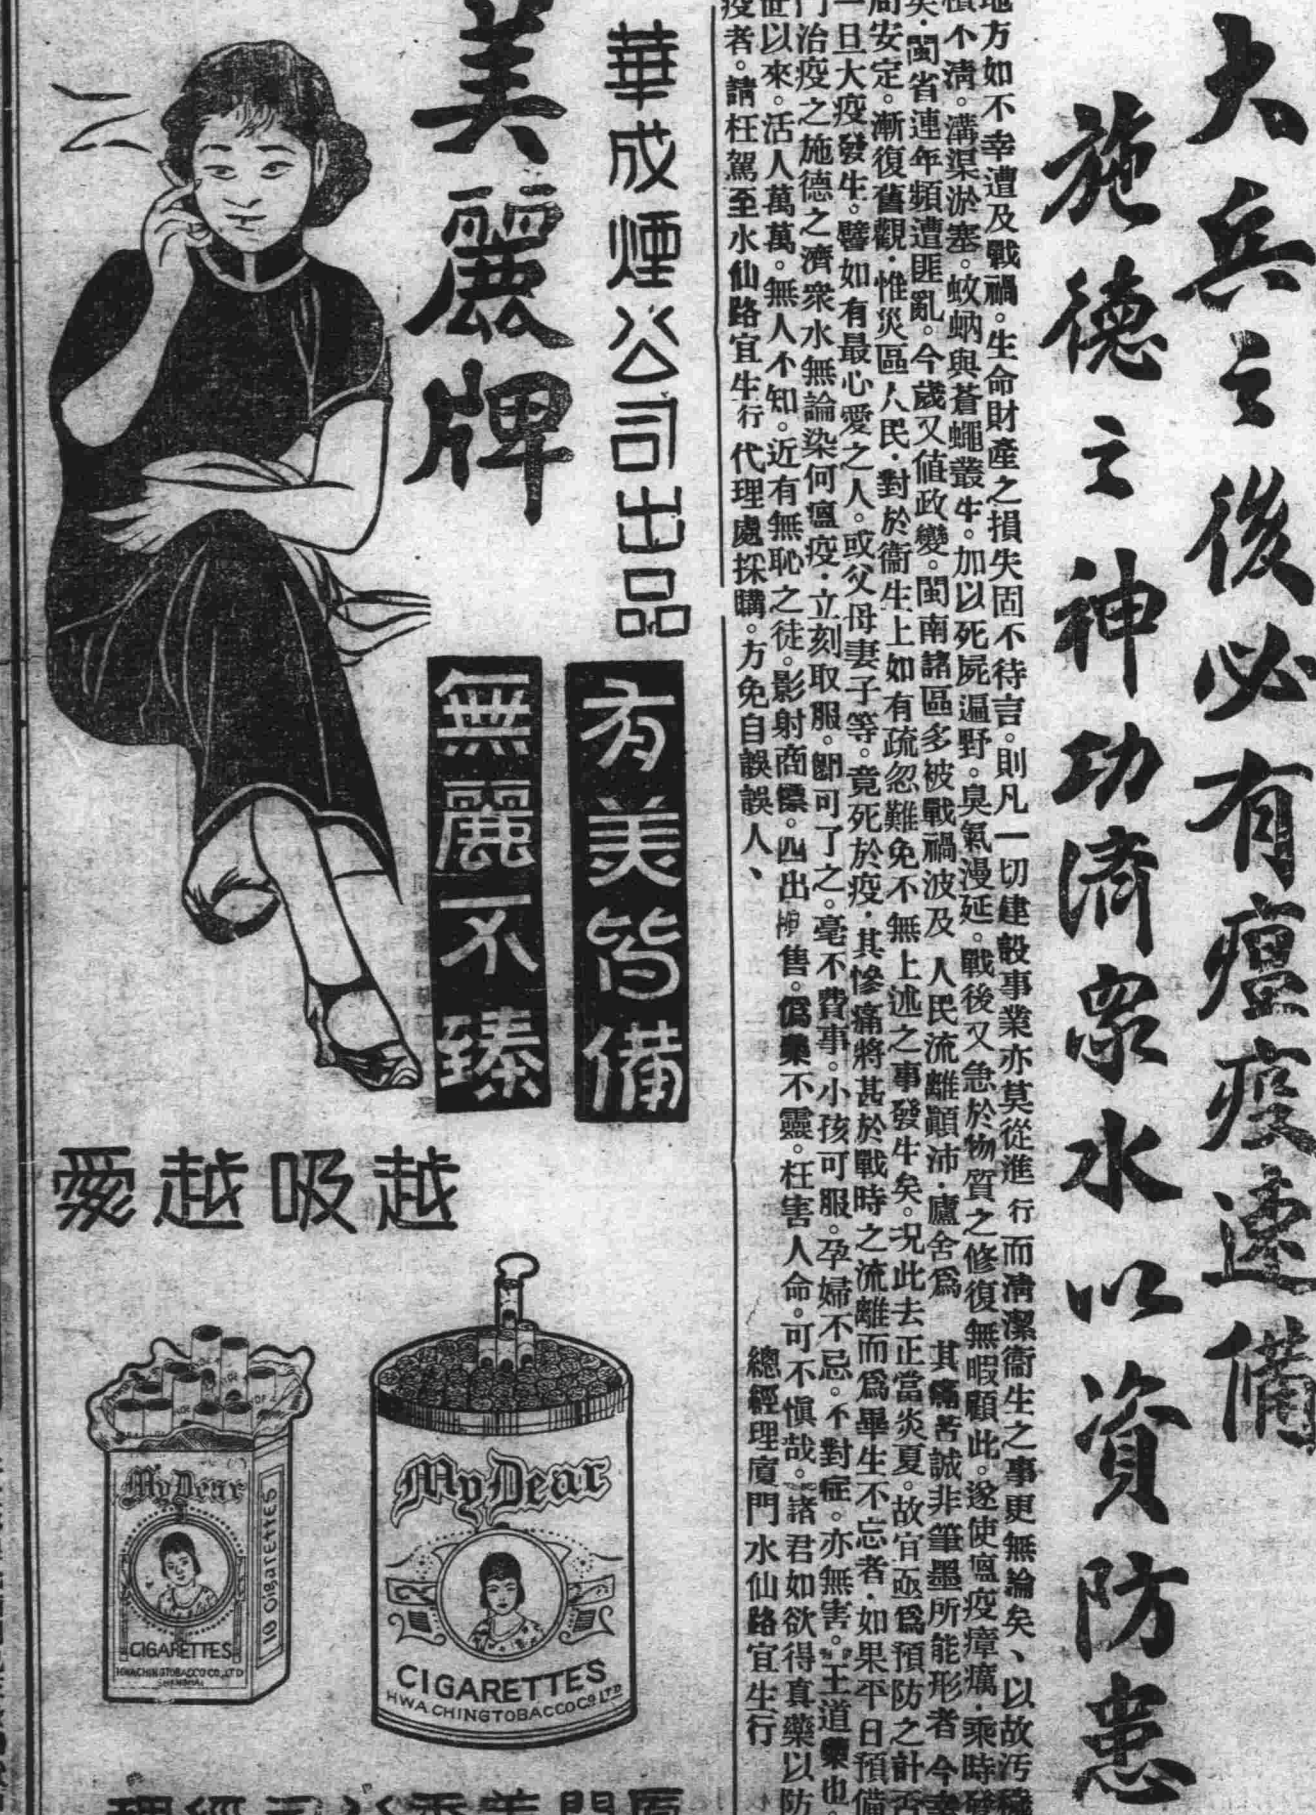 大兵之後必有瘟疫速備
施德之神功濟衆水以資防患
地方如不幸遭及戰禍。生命財產之損失固不待言。則凡一切建設事業亦莫從進行而清潔衞生之事更無論矣、以故汚穢
積不清。溝渠淤塞。蚊蚋與蒼蠅叢生。加以死屍遍野。臭氣漫延。戰後又急於物質之修復無暇顧此。遂使瘟疫瘴癘。乘時發
矣。閩省連年頻遭匪亂。今歲又值政變。閩南諸區多被戰禍波及 人民流離顚沛．廬舍爲 其痛苦誠非筆墨所能形者 今幸
局安定。漸復舊觀．惟災區人民．對於衞生上如有疏忽難免不無上述之事發生矣。况此去正當炎夏。故宜亟爲預防之計否
一旦大疫發生。譬如有最心愛之人。或父母妻子等。竟死於疫．其慘痛將甚於戰時之流離而爲畢生不忘者．如果平日預備
門治疫之施德之濟衆水無論染何瘟疫．立刻取服。卽可了之。毫不費事。小孩可服。孕婦不忌。不對症。亦無害。王道藥也。
世以來。活人萬萬。無人不知。近有無恥之徒。影射商標。四出 售。僞藥不靈。枉害人命。可不愼哉。諸君如欲得真藥以防
疫者。請枉駕至水仙路宜生行代理處採購。方免自誤誤人、
總經理廈門水仙路宜生行
華成煙公司出品
美麗牌
有美皆備
無麗不臻
愛越吸越
My Dear
CIGARETTES
HWA CHING TOBACCO CO. LTD
SHANGHAI
10 Cigarettes
My Dear
CIGARETTES
HWA CHING TOBACCO CO. LTD